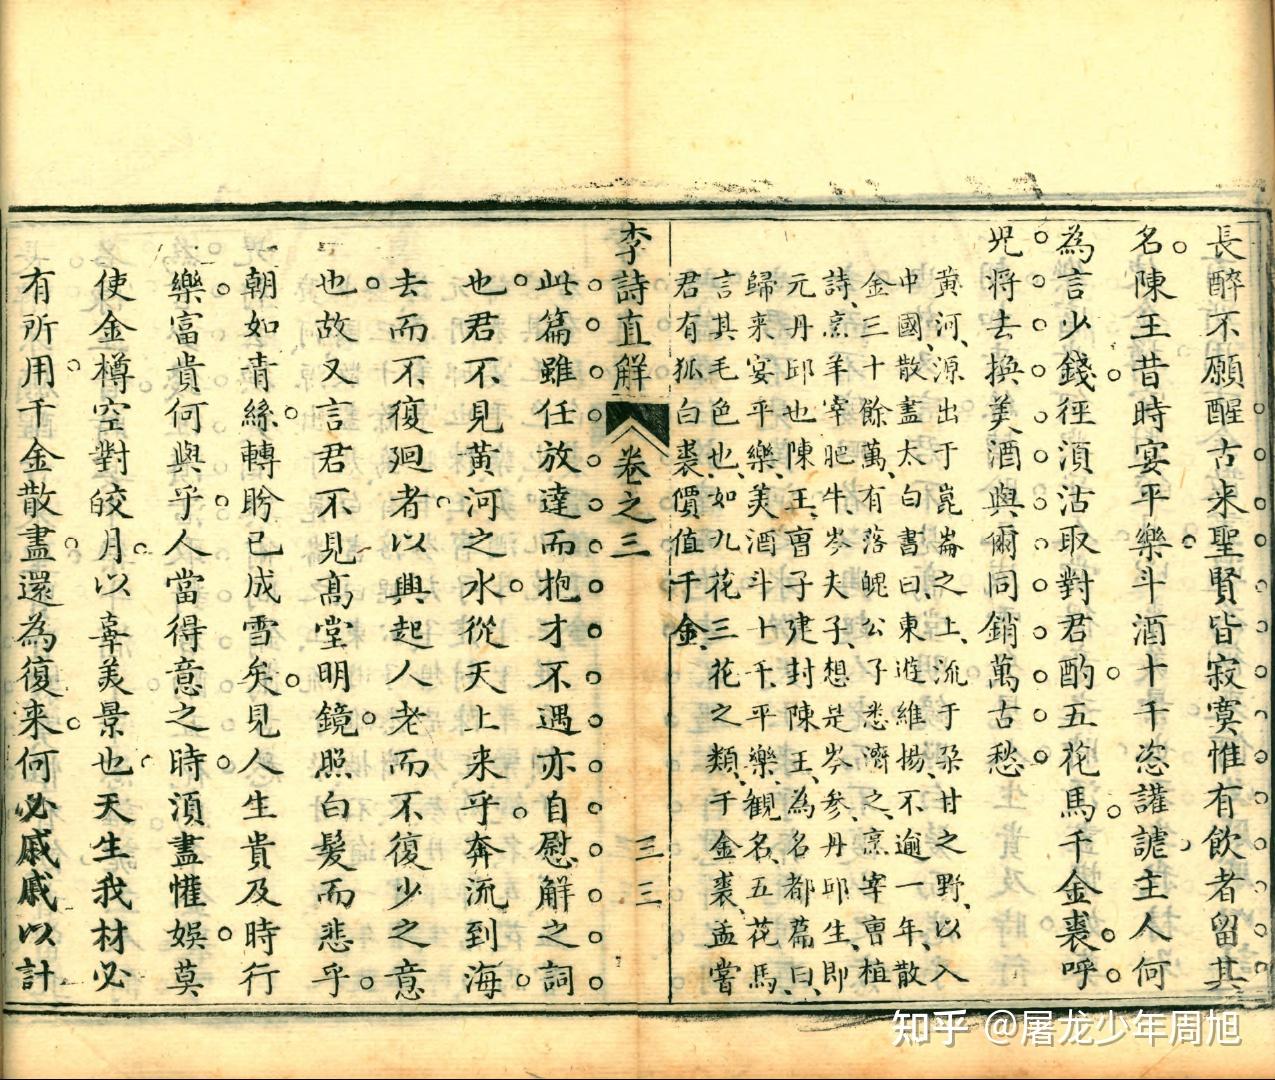 長醉不願醒古來聖賢皆寂寞惟有飲者留其
名陳王昔時宴平樂斗酒十千恣讙謔主人何
為言少錢徑須沽取對君酌五花馬千金裘呼
兕將去換美酒與爾同銷萬古愁
黃河源出于崑崙之上流于朶甘之野以入
中國散蓋太白書曰東遊維揚不逾一年散
金三十餘萬有落魄公子悉濟之烹宰曹植
詩烹羊宰肥牛岑夫子想是岑參丹邱生即
元丹邱也陳王曹子建封陳王為名都篇曰
歸來宴平樂美酒斗十千平樂觀名五花馬
言其毛色也如九花三花之類千金裘孟嘗
君有狐白裘價值千金
李詩直解 卷之三 三三
此篇雖任放達而抱才不遇亦自慰解之詞
也君不見黃河之水從天上來乎奔流到海
去而不復廻者以興起人老而不復少之意
也故又言君不見高堂明鏡照白髮而悲乎
朝如青絲轉盻已成雪矣見人生貴及時行
樂富貴何與乎人當得意之時須盡懽娛莫
使金樽空對皎月以辜美景也天生我材必
有所用千金散盡還為復來何必戚戚以計
知乎 @屠龙少年周旭